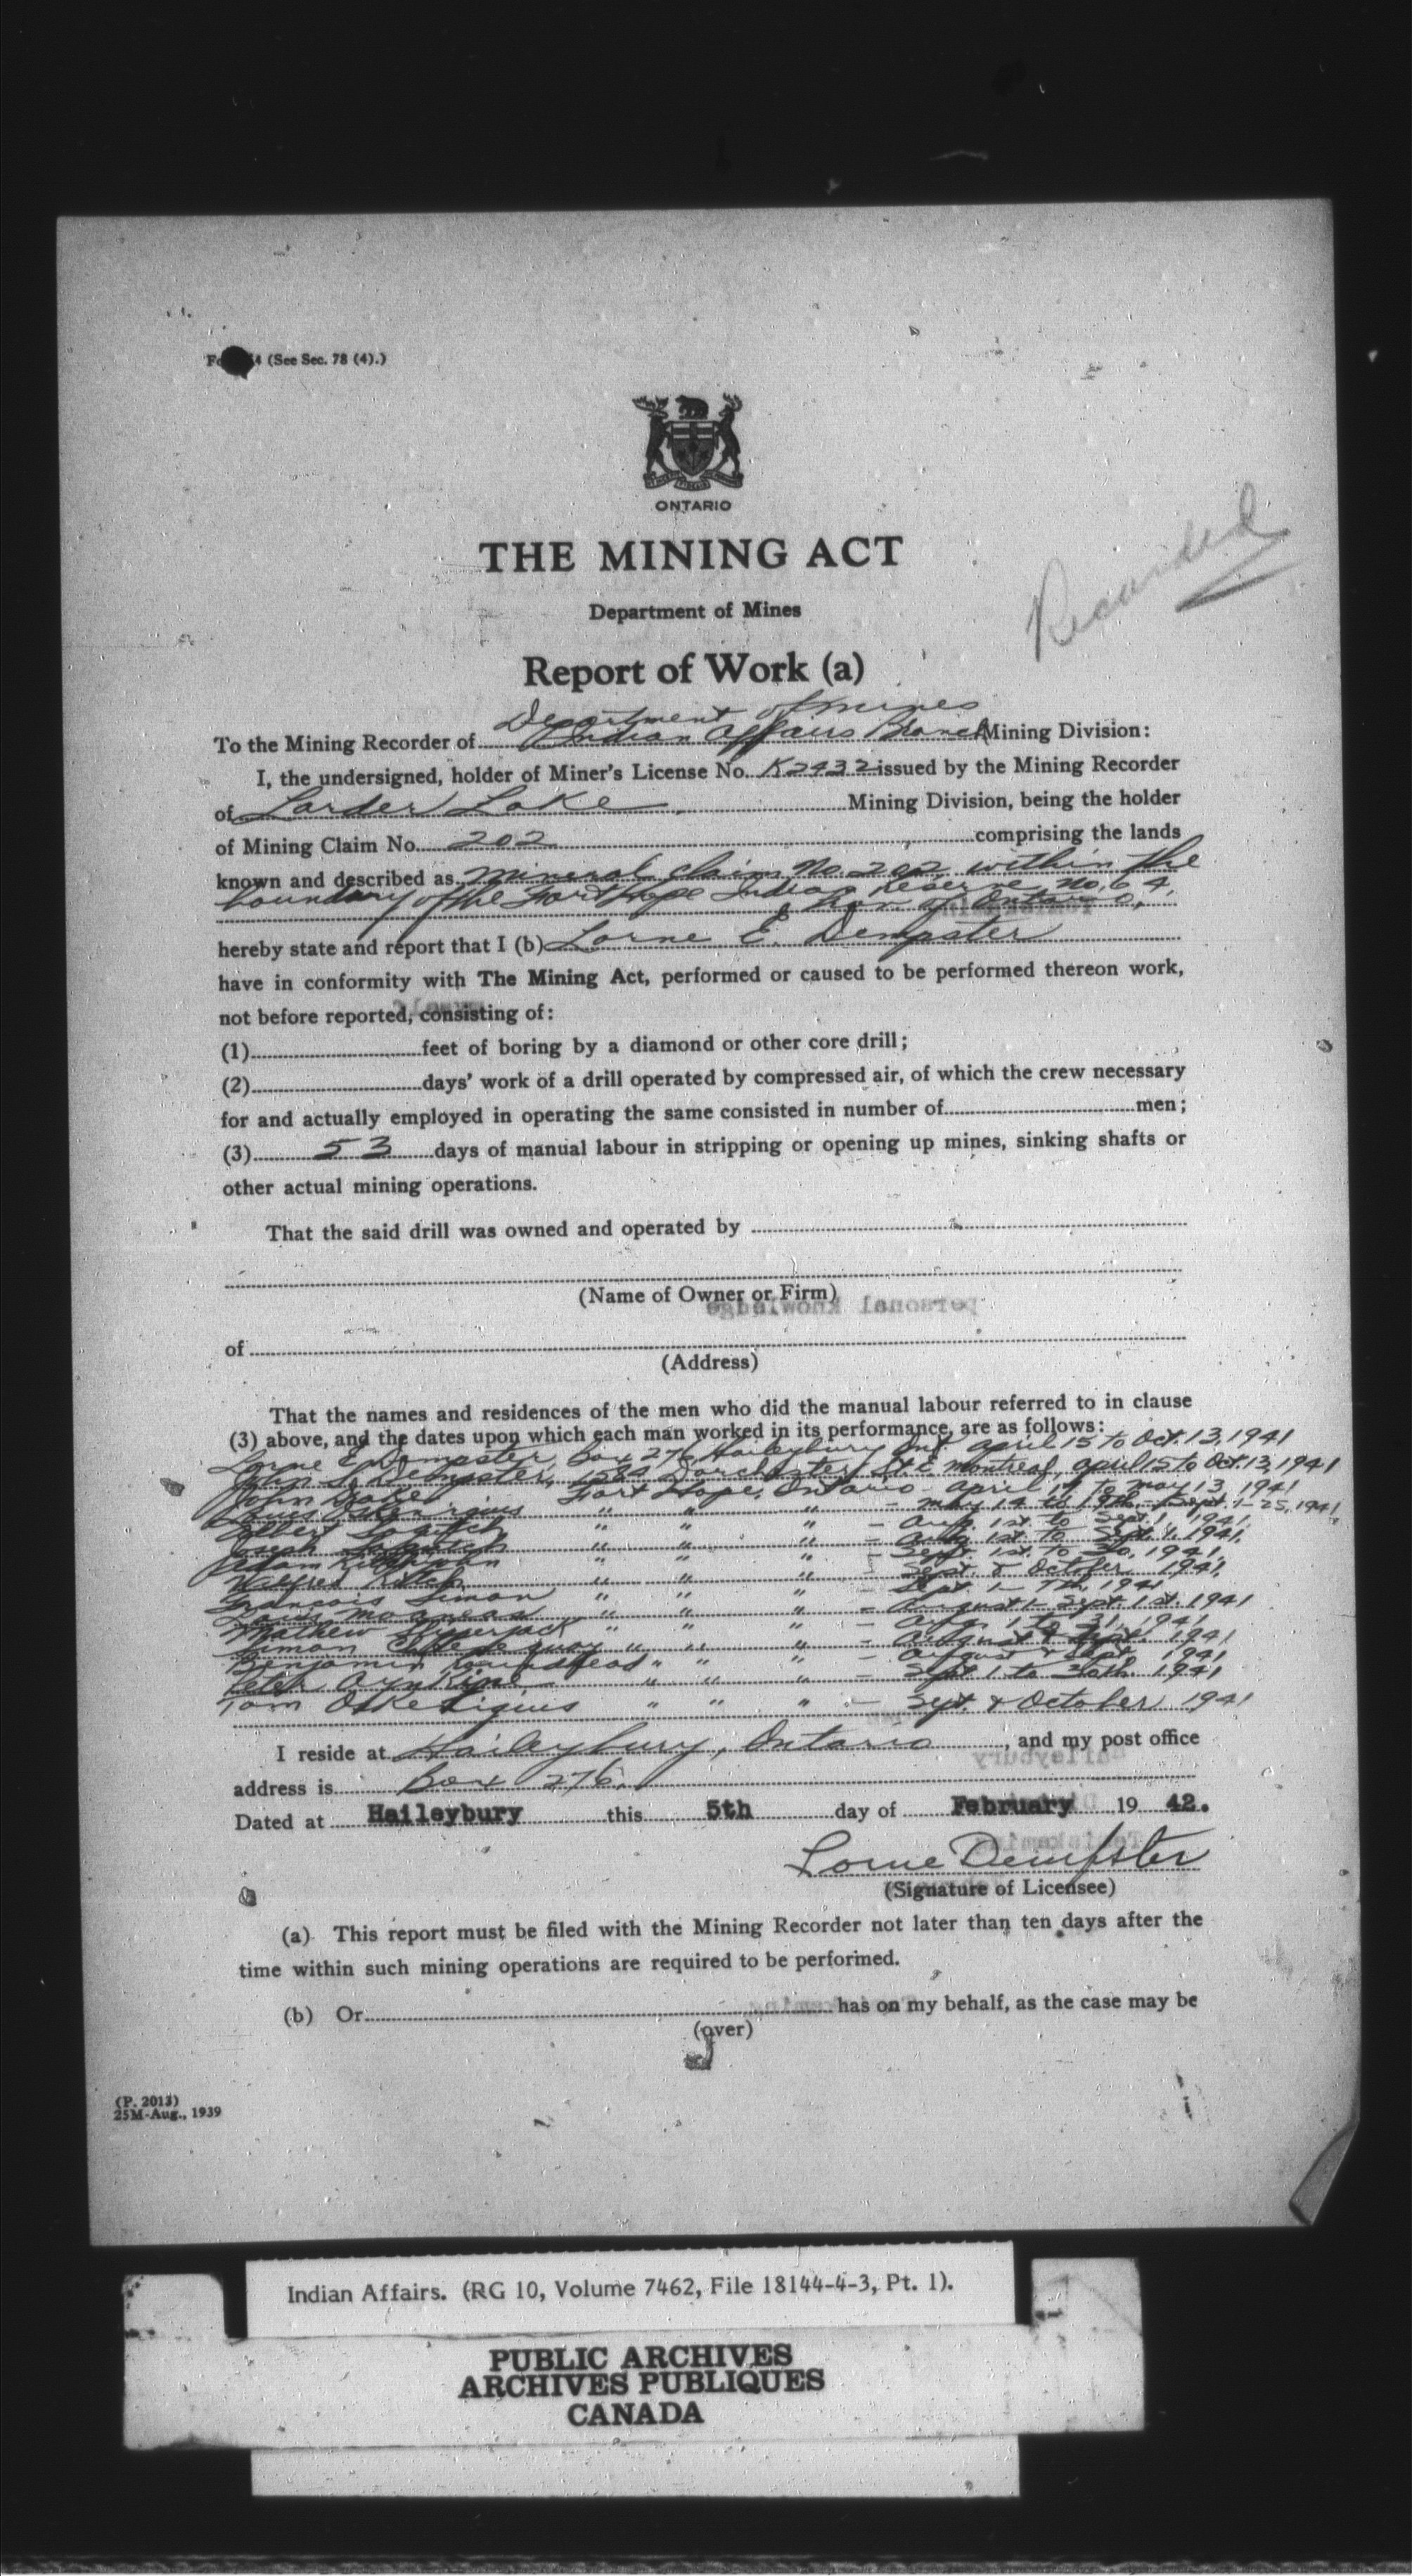 4 (See Sec. 78 (4).)
ONTARIO
THE MINING ACT
Recorded
Department of Mines
Report of Work (a)
Department of Mines
To the Mining Recorder of Indian Affairs Branch Mining Division:
I, the undersigned, holder of Miner's License No. K2432 issued by the Mining Recorder
of Larder Lake Mining Division, being the holder
of Mining Claim No. 202 comprising the lands
known and described as Mineral Claim No. 202, within the
boundary of the Fort Hope Indian Reserve No. 64,
Prov. of Ontario,
hereby state and report that I (b) Lorne E. Dempster
have in conformity with The Mining Act, performed or caused to be performed thereon work,
not before reported, consisting of:
(1) feet of boring by a diamond or other core drill;
(2) days' work of a drill operated by compressed air, of which the crew necessary
for and actually employed in operating the same consisted in number of men;
(3) 53 days of manual labour in stripping or opening up mines, sinking shafts or
other actual mining operations.
That the said drill was owned and operated by
(Name of Owner or Firm)
personal knowledge
of
(Address)
That the names and residences of the men who did the manual labour referred to in clause
(3) above, and the dates upon which each man worked in its performance, are as follows:
Lorne E Dempster, Box 276, Haileybury Ont. April 15 to Oct. 13, 1941
John S. Dempster, 1584 Dorchester St. E. Montreal, April 15 to Oct. 13, 1941
John Fort Hope, Ontario - April 19 to May 13, 1941
Louis " " " - May 14 to 19th, Sept. 1-25, 1941
Albert " " " - Aug. 1st. to Sept. 1, 1941,
Joseph " " " - Aug. 1st. to Sept. 1, 1941,
" " " - Sept. 1st. to 30, 1941,
Wilfred " " " Sept. & October 1941,
Francois Simon " " " - Sept. 1 - 1941
Louis " " " - August 1 - Sept. 1st. 1941
Mathew Slipperjack " " " - Aug. 1 to 31, 1941
Simon " " " - August & Sept. 1941
Benjamin Roundhead " " " - August & Sept. 1941
Peter " " " - Sept. 1 to 30th 1941
Tom " " " - Sept. & October 1941
I reside at Haileybury, Ontario, and my post office
address is Box 276.
Dated at Haileybury this 5th day of February 19 42.
Lorne Dempster
(Signature of Licensee)
(a) This report must be filed with the Mining Recorder not later than ten days after the
time within such mining operations are required to be performed.
(b) Or has on my behalf, as the case may be
(over)
(P. 2013)
25M-Aug., 1939
Indian Affairs. (RG 10, Volume 7462, File 18144-4-3, Pt. 1).
PUBLIC ARCHIVES
ARCHIVES PUBLIQUES
CANADA